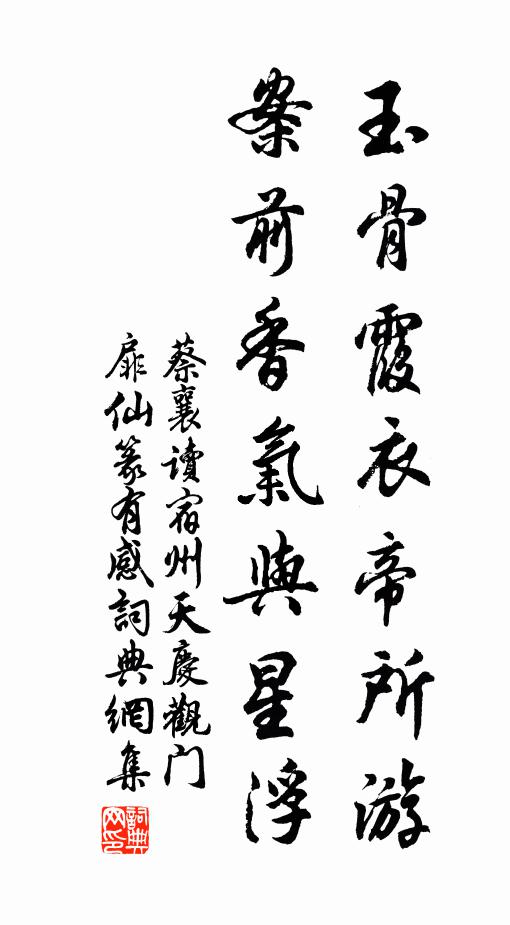 玉骨霞衣帝所游
案前香氣與星浮
蔡襄讀宿州天慶觀门
扉仙篆有感詞典網集
詞典网印